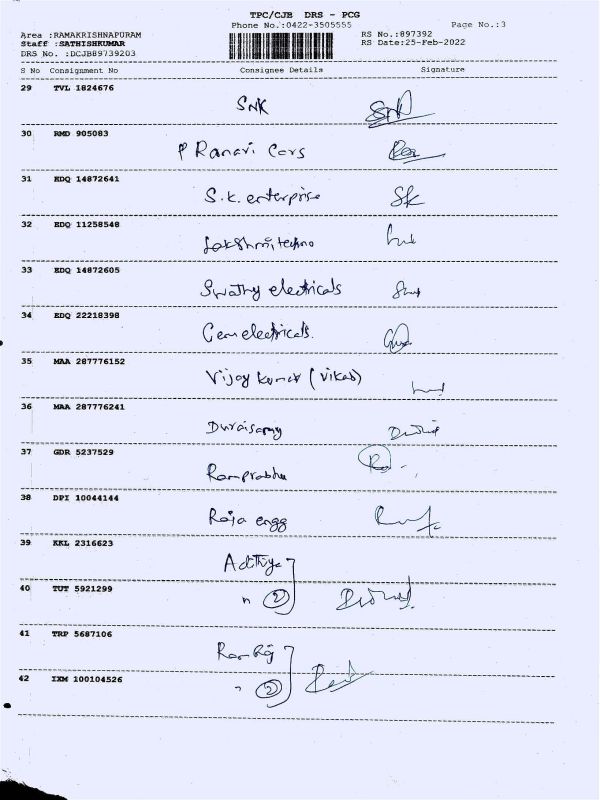 TPC/CJB DRS - PCG
Phone No.:0422-3505555
Page No.:3
Area :RAMAKRISHNAPURAM
RS No.:897392
Staff :SATHISHKUMAR
RS Date:25-Feb-2022
DRS No. :DCJB89739203
S No Consignment No Consignee Details Signature
29 TVL 1824676
SNK SNK
30 RMD 905083
P Ranavi Cars
31 EDQ 14872641
S.K. enterprise SK
32 EDQ 11258548
Lakshmi techno
33 EDQ 14872605
Swathy electricals
34 EDQ 22218398
Gem electricals.
35 MAA 287776152
Vijay Kumar (Vikas)
36 MAA 287776241
Duraisamy
37 GDR 5237529
Ramprabhu
38 DPI 10044144
Raja engg
39 KKL 2316623
Adithya
40 TUT 5921299
" 2
41 TRP 5687106
Ram Raj
42 IXM 100104526
" 2